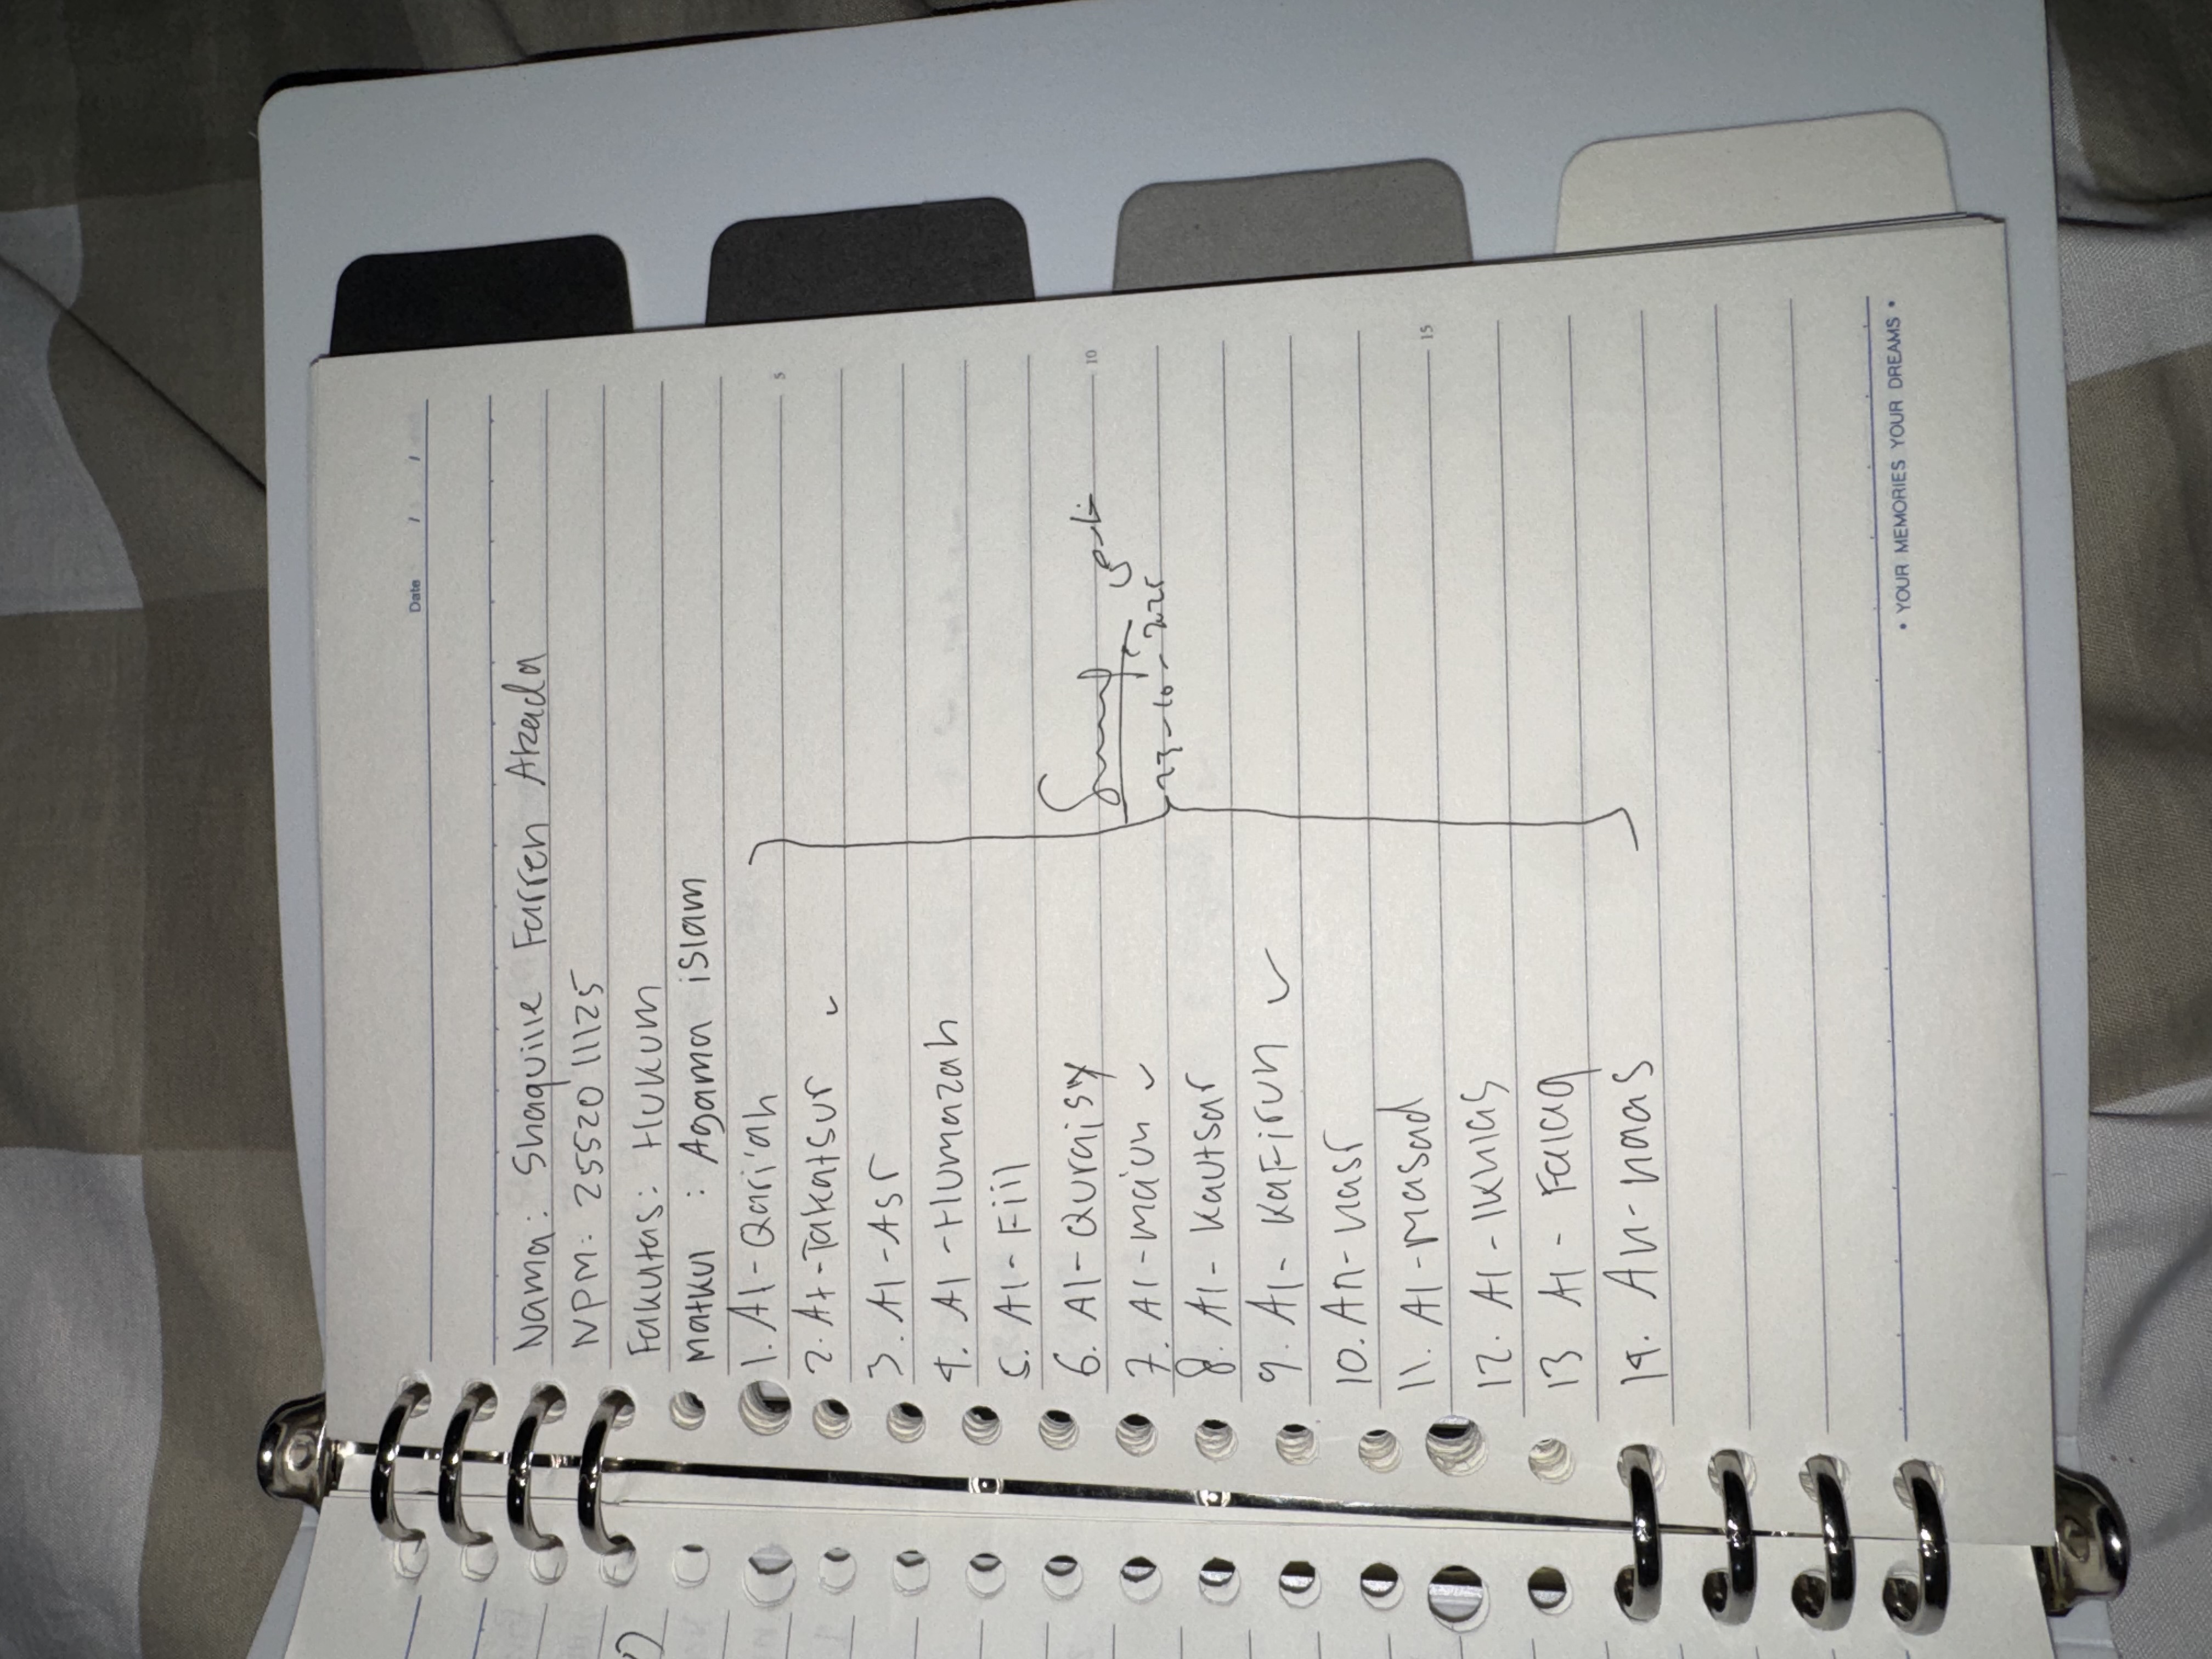 Date / /
Nama: Shaquille Farren Atzada
NPM: 2552011125
Fakultas: Hukum
Matkul : Agama islam
1. Al-Qari'ah
5
2. At-Takatsur ✓
3. Al-Asr
4. Al-Humazah
5. Al-Fiil
6. Al-Quraisy
10
7. Al-maiun ✓
23-10-2025
8. Al-kautsar
9. Al-kafirun ✓
10. An-nasr
11. Al-masad
15
12. Al-Ikhlas
13 Al-Falaq
14. An-naas
• YOUR MEMORIES YOUR DREAMS •